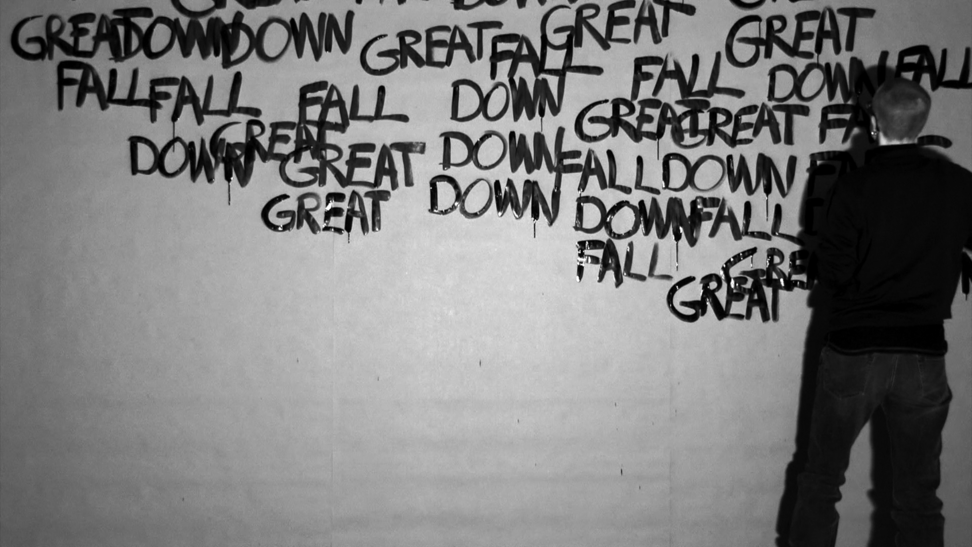 GREAT DOWN DOWN GREAT FALL GREAT GREAT
FALL FALL FALL DOWN FALL DOWN FALL
DOWN GREAT GREAT DOWN GREAT GREAT
GREAT DOWN FALL DOWN
DOWN FALL
FALL
GREAT